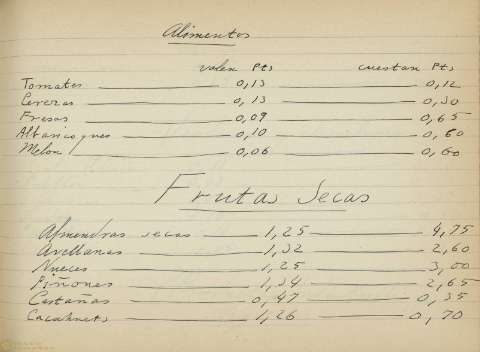 Alimentos
valen Pts cuestan Pts
Tomates 0,13 0,12
Cerezas 0,13 0,30
Fresas 0,09 0,65
Albaricoques 0,10 0,60
Melon 0,06 0,60
Frutas Secas
Almendras secas 1,25 4,75
Avellanas 1,32 2,60
Nueces 1,25 3,00
Piñones 1,34 2,65
Castañas 0,47 0,35
Cacahuets 1,26 0,70